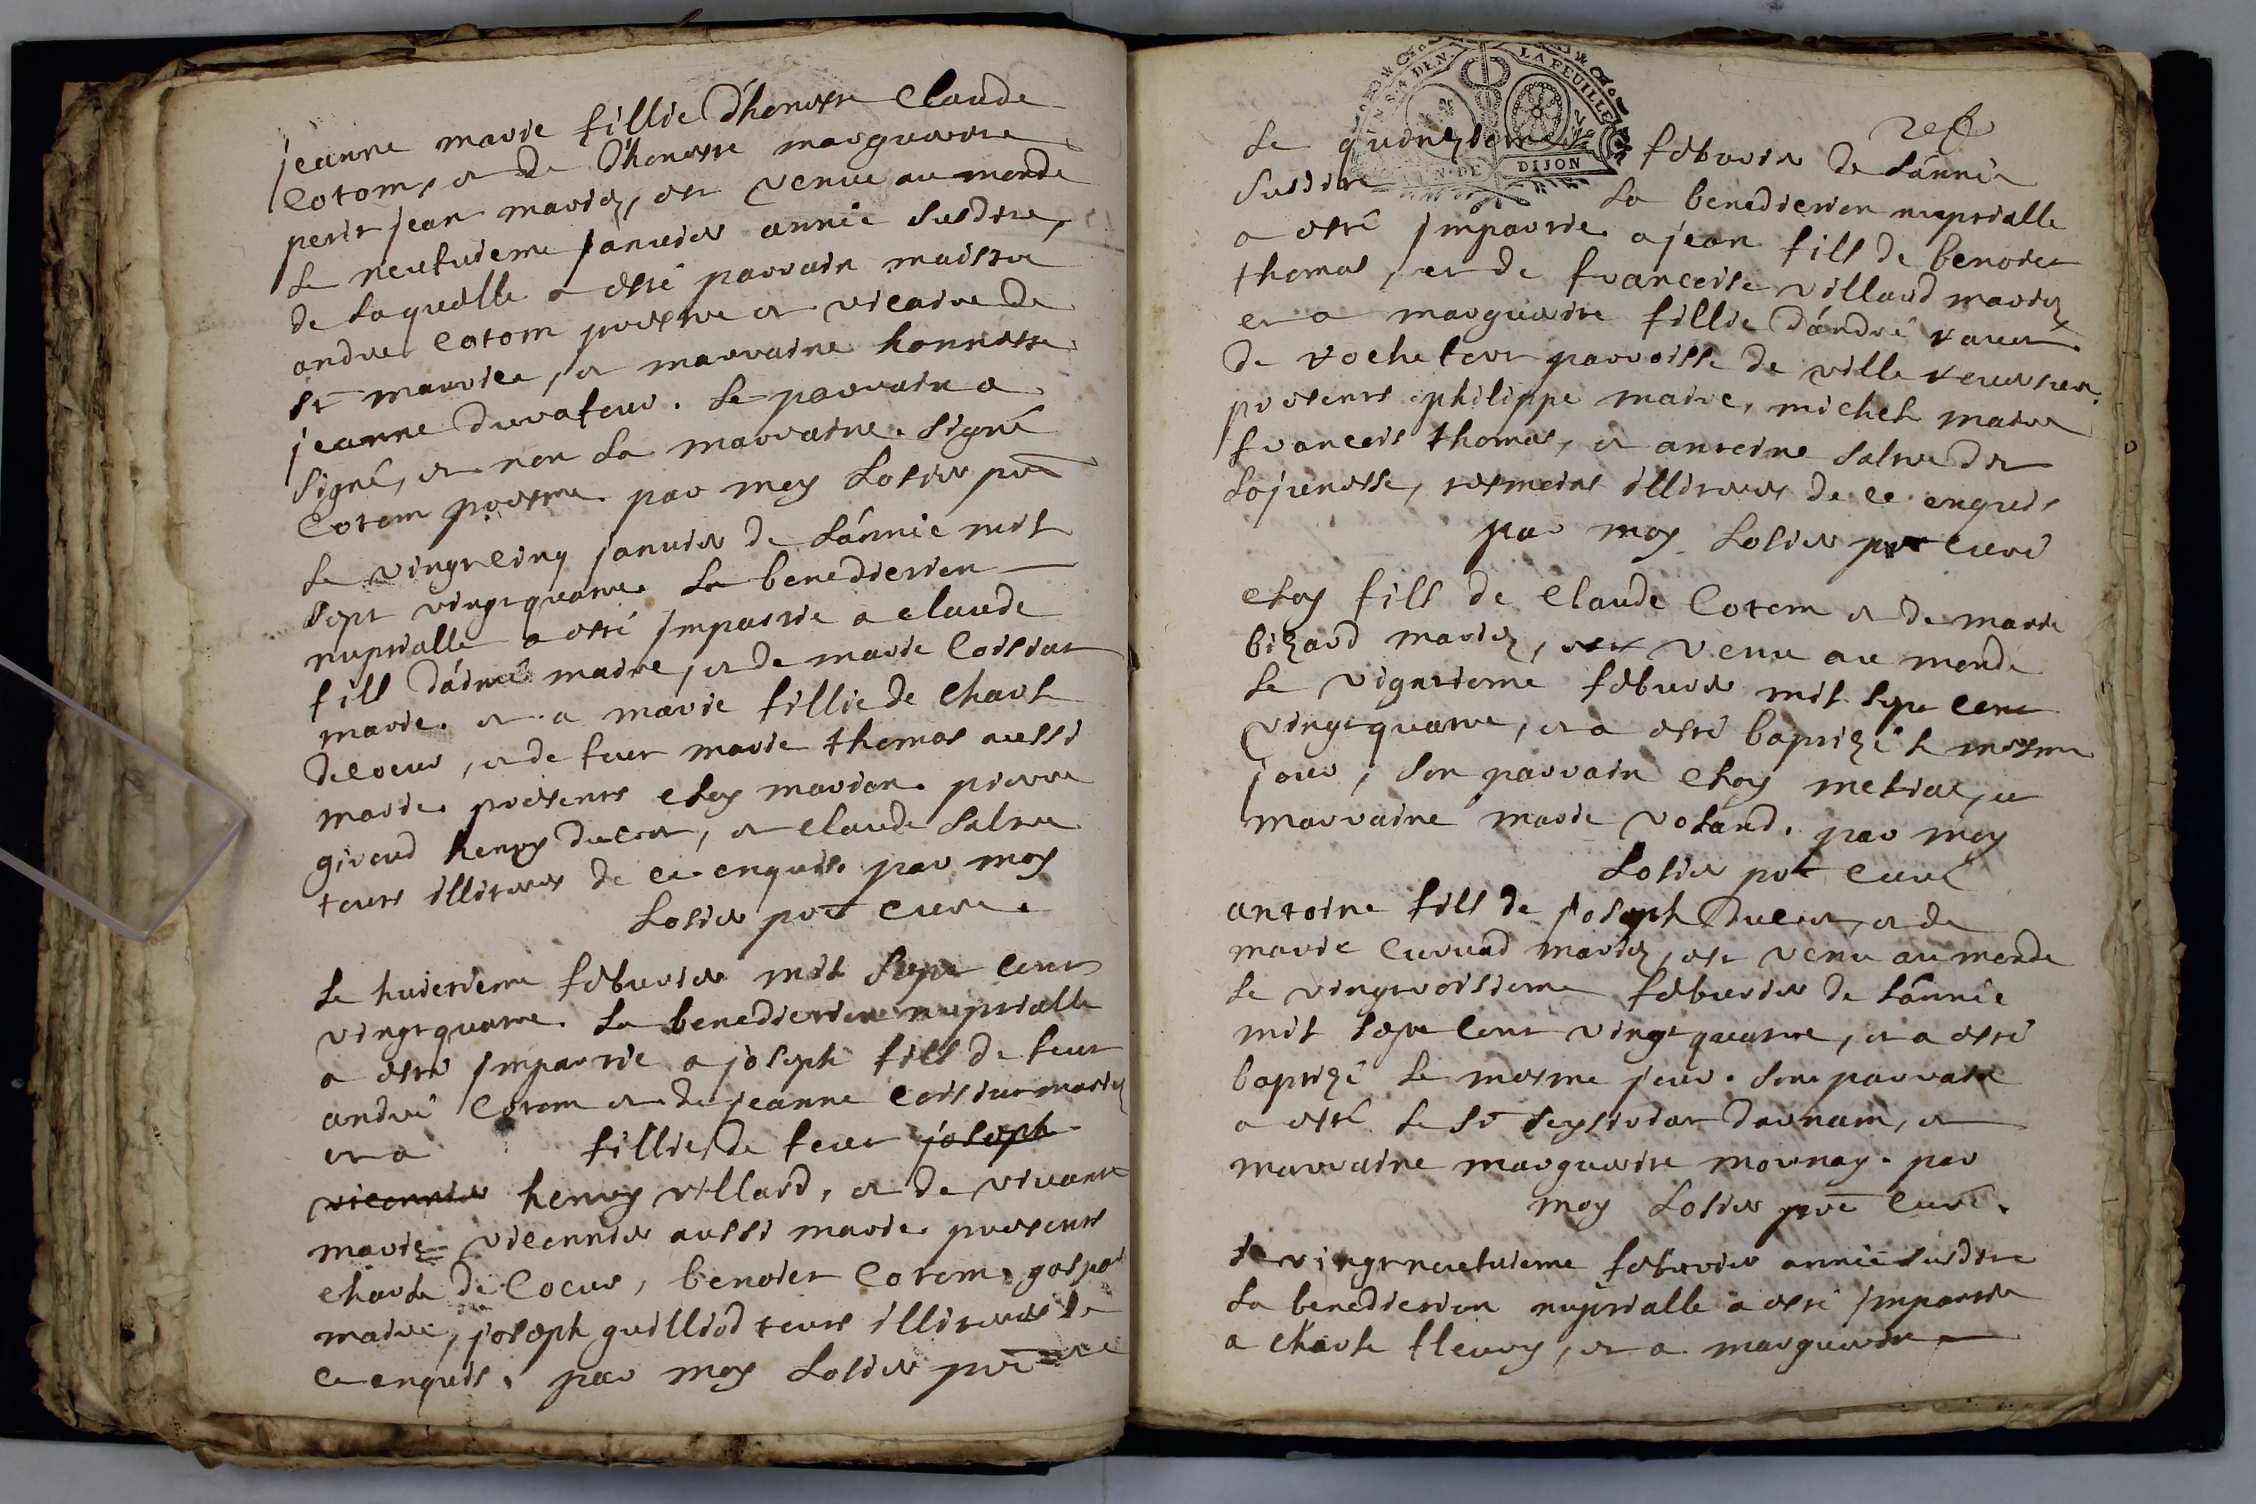 jeanne marie fillie d'honeste Claude
Cotom, et de d'honeste marguerite
petit jean mariez, est venue au monde
Le neufvieme januier année susdite,
de Laquelle a esté parrain maistre
andre Cotom prestre et vicaire de
st maurice, et marraine honneste
jeanne durafour. Le parrain a
signé, et non La marraine. signé
Cotom prestre. par moy Losier pre
Le vingt cinq januier de L'année mil
sept vingt quatre La benediction
nuptialle a esté impartie a claude
fill d'aimé maire, et de marie Coissiat
marie. et a marie fillie de Charle
decoeur, et de feue marie thomas aussi
marie. présents eloy marion. pierre
giroud henry ducret, et claude saltre
tous illiteres de ce enquis. par moy
Losier pre cure.
Le huictieme februier mil sept cent
vingt quatre. La benediction nuptialle
a esté impartie a joseph fill de feu
andré Cotom et de jeanne coissiat mariez
et a fillie de feu joseph
viconnier henry villard, et de vivante
marie viconnier aussi marie. presents
charle de Coeur, benoict Cotom, gaspar
maire, joseph guilliod tous illiteres de
ce enquis. par moy Losier pre
LA FEUILLE
DIJON
Le quinzieme februier de L'année
susdite La benediction nuptialle
a esté impartie a jean fill de benoict
thomas, et de francoise villard mariez
et a marguerite fillie d'andré
de rochefort parroisse de ville reversure.
présents philippe maire, michel maire
francois thomas, et antoine saltre dit
Lajunesse, tesmoins illiteres de ce enquis
par moy Losier pre curé
eloy fill de Claude Cotom et de marie
bizard mariez, est venu au monde
Le vigntieme februier mil sept cent
vingt quatre, et a esté baptizé le mesme
jour, son parrain eloy, et
marraine marie voland. par moy
Losier pre curé
antoine fill de joseph Ducret, et de
marie mariez, est venu au monde
Le vingt troisieme februier de L'année
mil sept cent vingt quatre, et a esté
baptizé Le mesme jour. son parrain
a esté Le sr darnam, et
marraine marguerite mornay. par
moy Losier pre curé.
Le vingt neufvieme februier année susdite
La benediction nuptialle a esté impartie
a charle fleury, et a marguerite